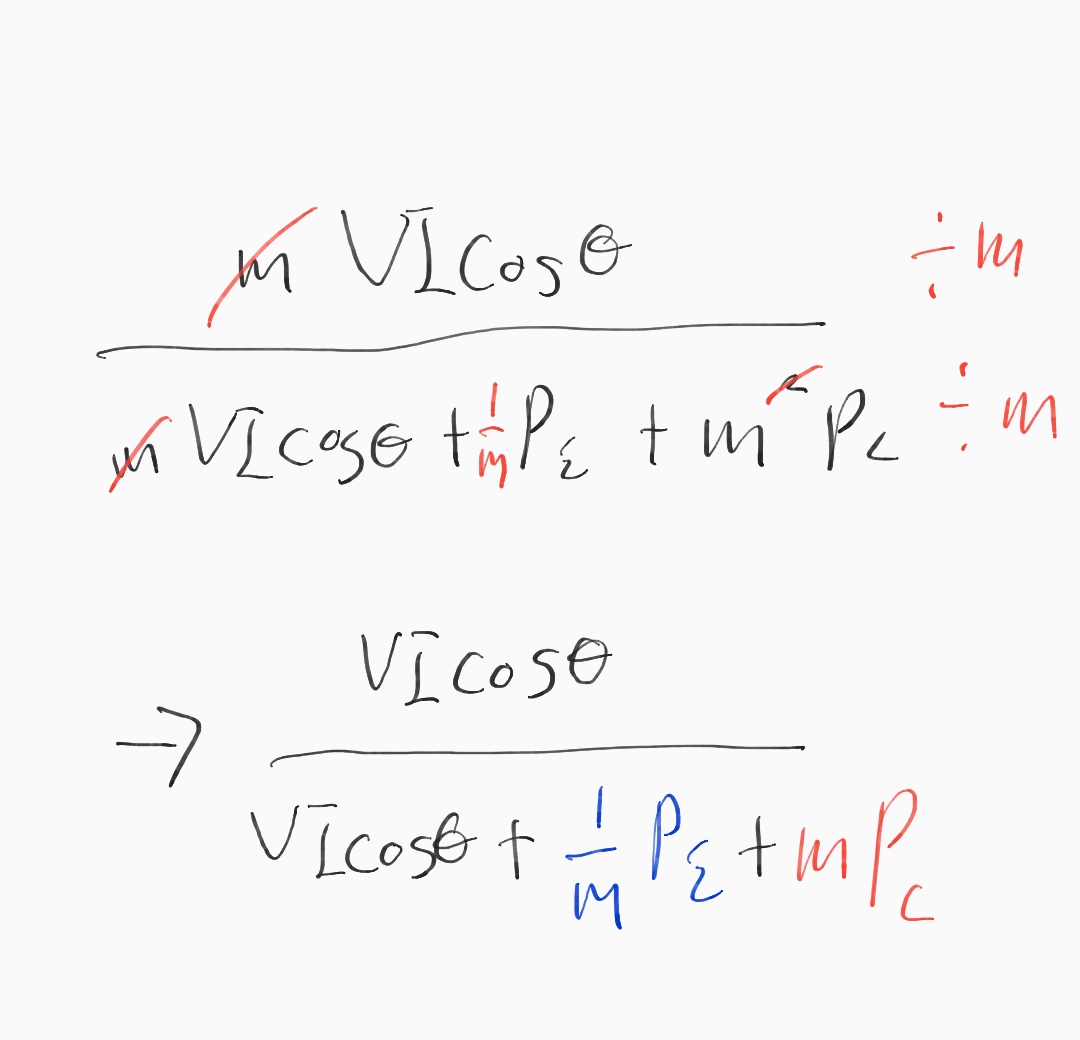 m VI cosθ ÷ m
m VI cosθ + 1/m P_i + m² P_c ÷ m
→ VI cosθ
VI cosθ + 1/m P_i + m P_c